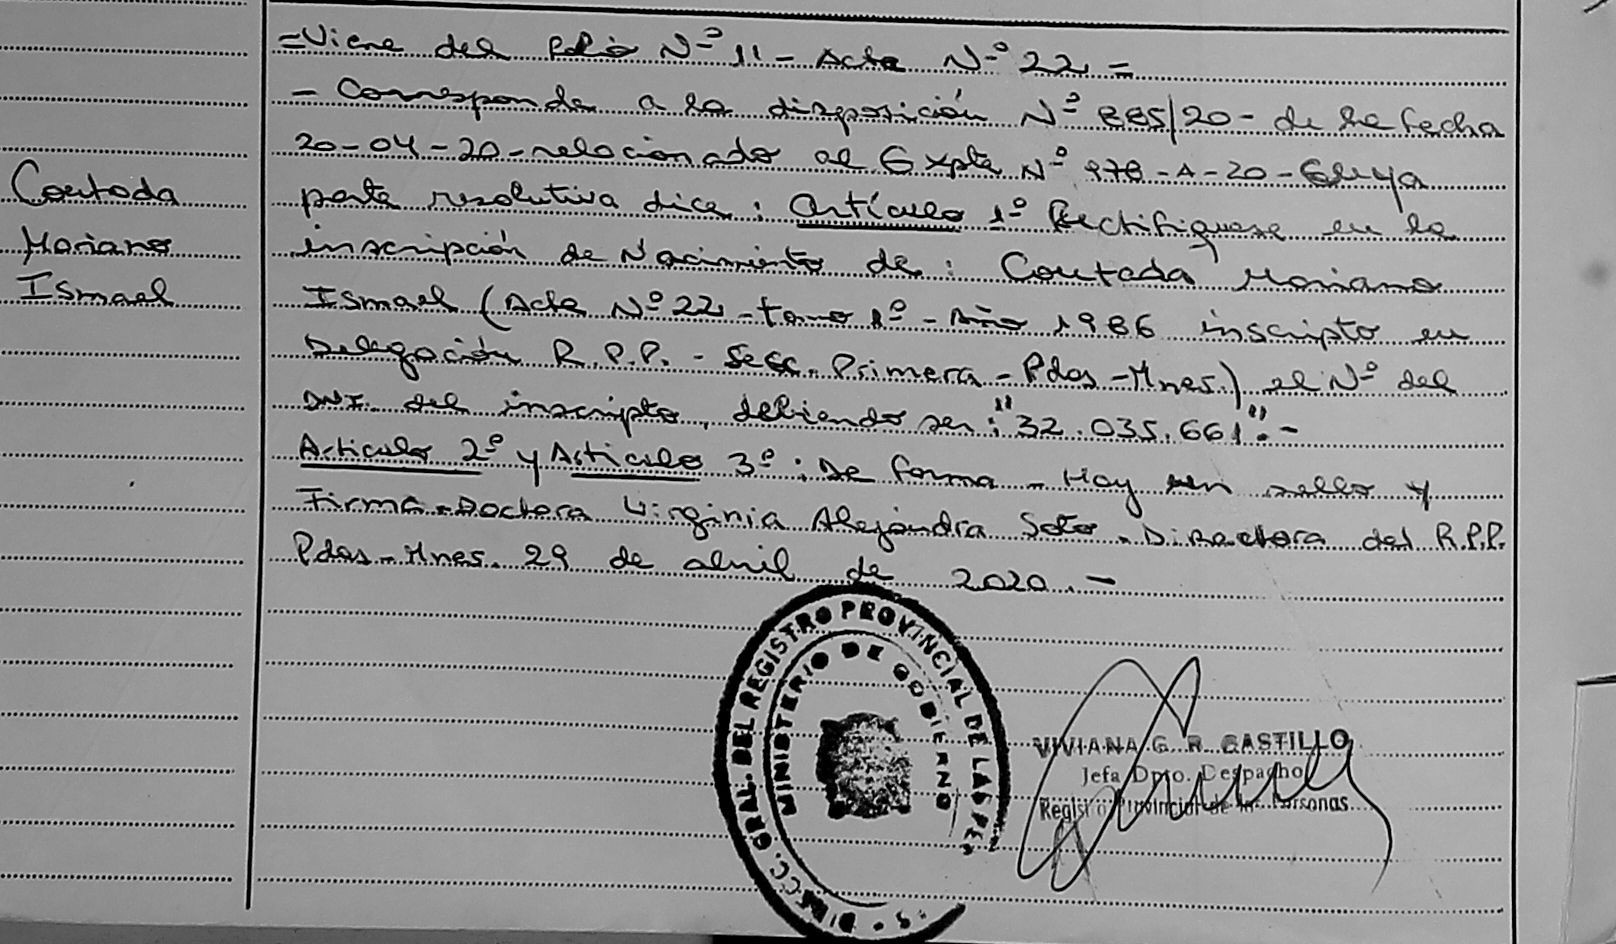 =Viene del Folio Nº 11 - Acta Nº 22 =
- Corresponde a la disposición Nº 885/20 - de la fecha
20-04-20 - relacionado al Expte Nº 978-A-20 - Cuya
parte resolutiva dice: Artículo 1º Rectifiquese en la
inscripción de Nacimiento de: Coutada Mariano
Ismael (Acta Nº 22 - tomo 1º - Año 1986 inscripto en
Delegación R.P.P. - Secc. Primera - Pdas - Mnes.) el Nº del
DNI. del inscripto, debiendo ser: "32.035.661". -
Articulo 2º y Articulo 3º: De forma - Hay un sello y
Firma - Doctora Virginia Alejandra Soto - Directora del R.P.P.
Pdas - Mnes. 29 de abril de 2020. -
Coutada
Mariano
Ismael
DIRECC. GRAL. DEL REGISTRO PROVINCIAL DE LAS PER
MINISTERIO DE GOBIERNO
VIVIANA G. R. CASTILLO
Jefa Dpto. Despacho
Registro Provincial de las Personas